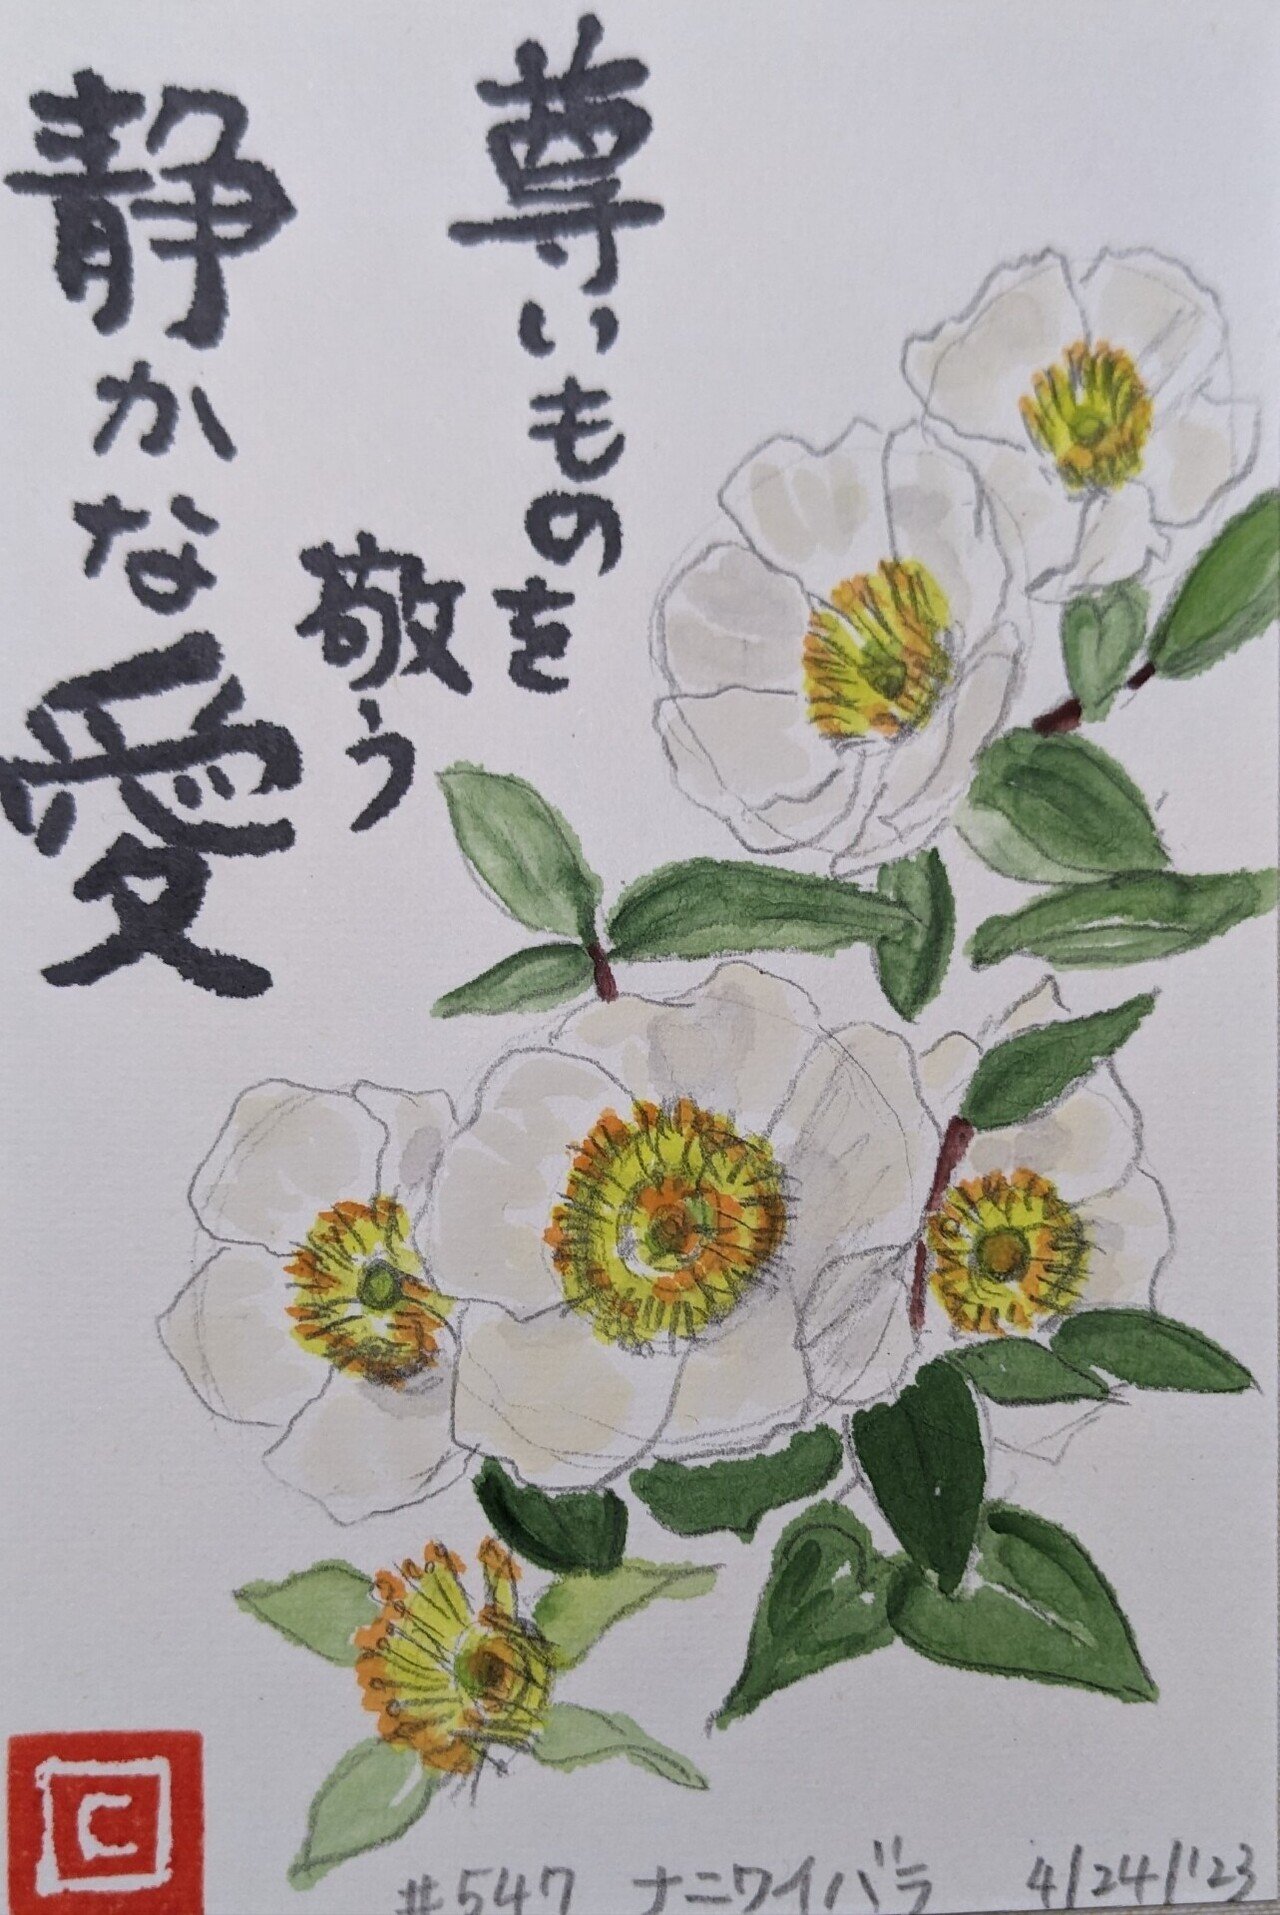 尊いものを
敬う
静かな愛
C
#547 ナニワイバラ 4/24/'23